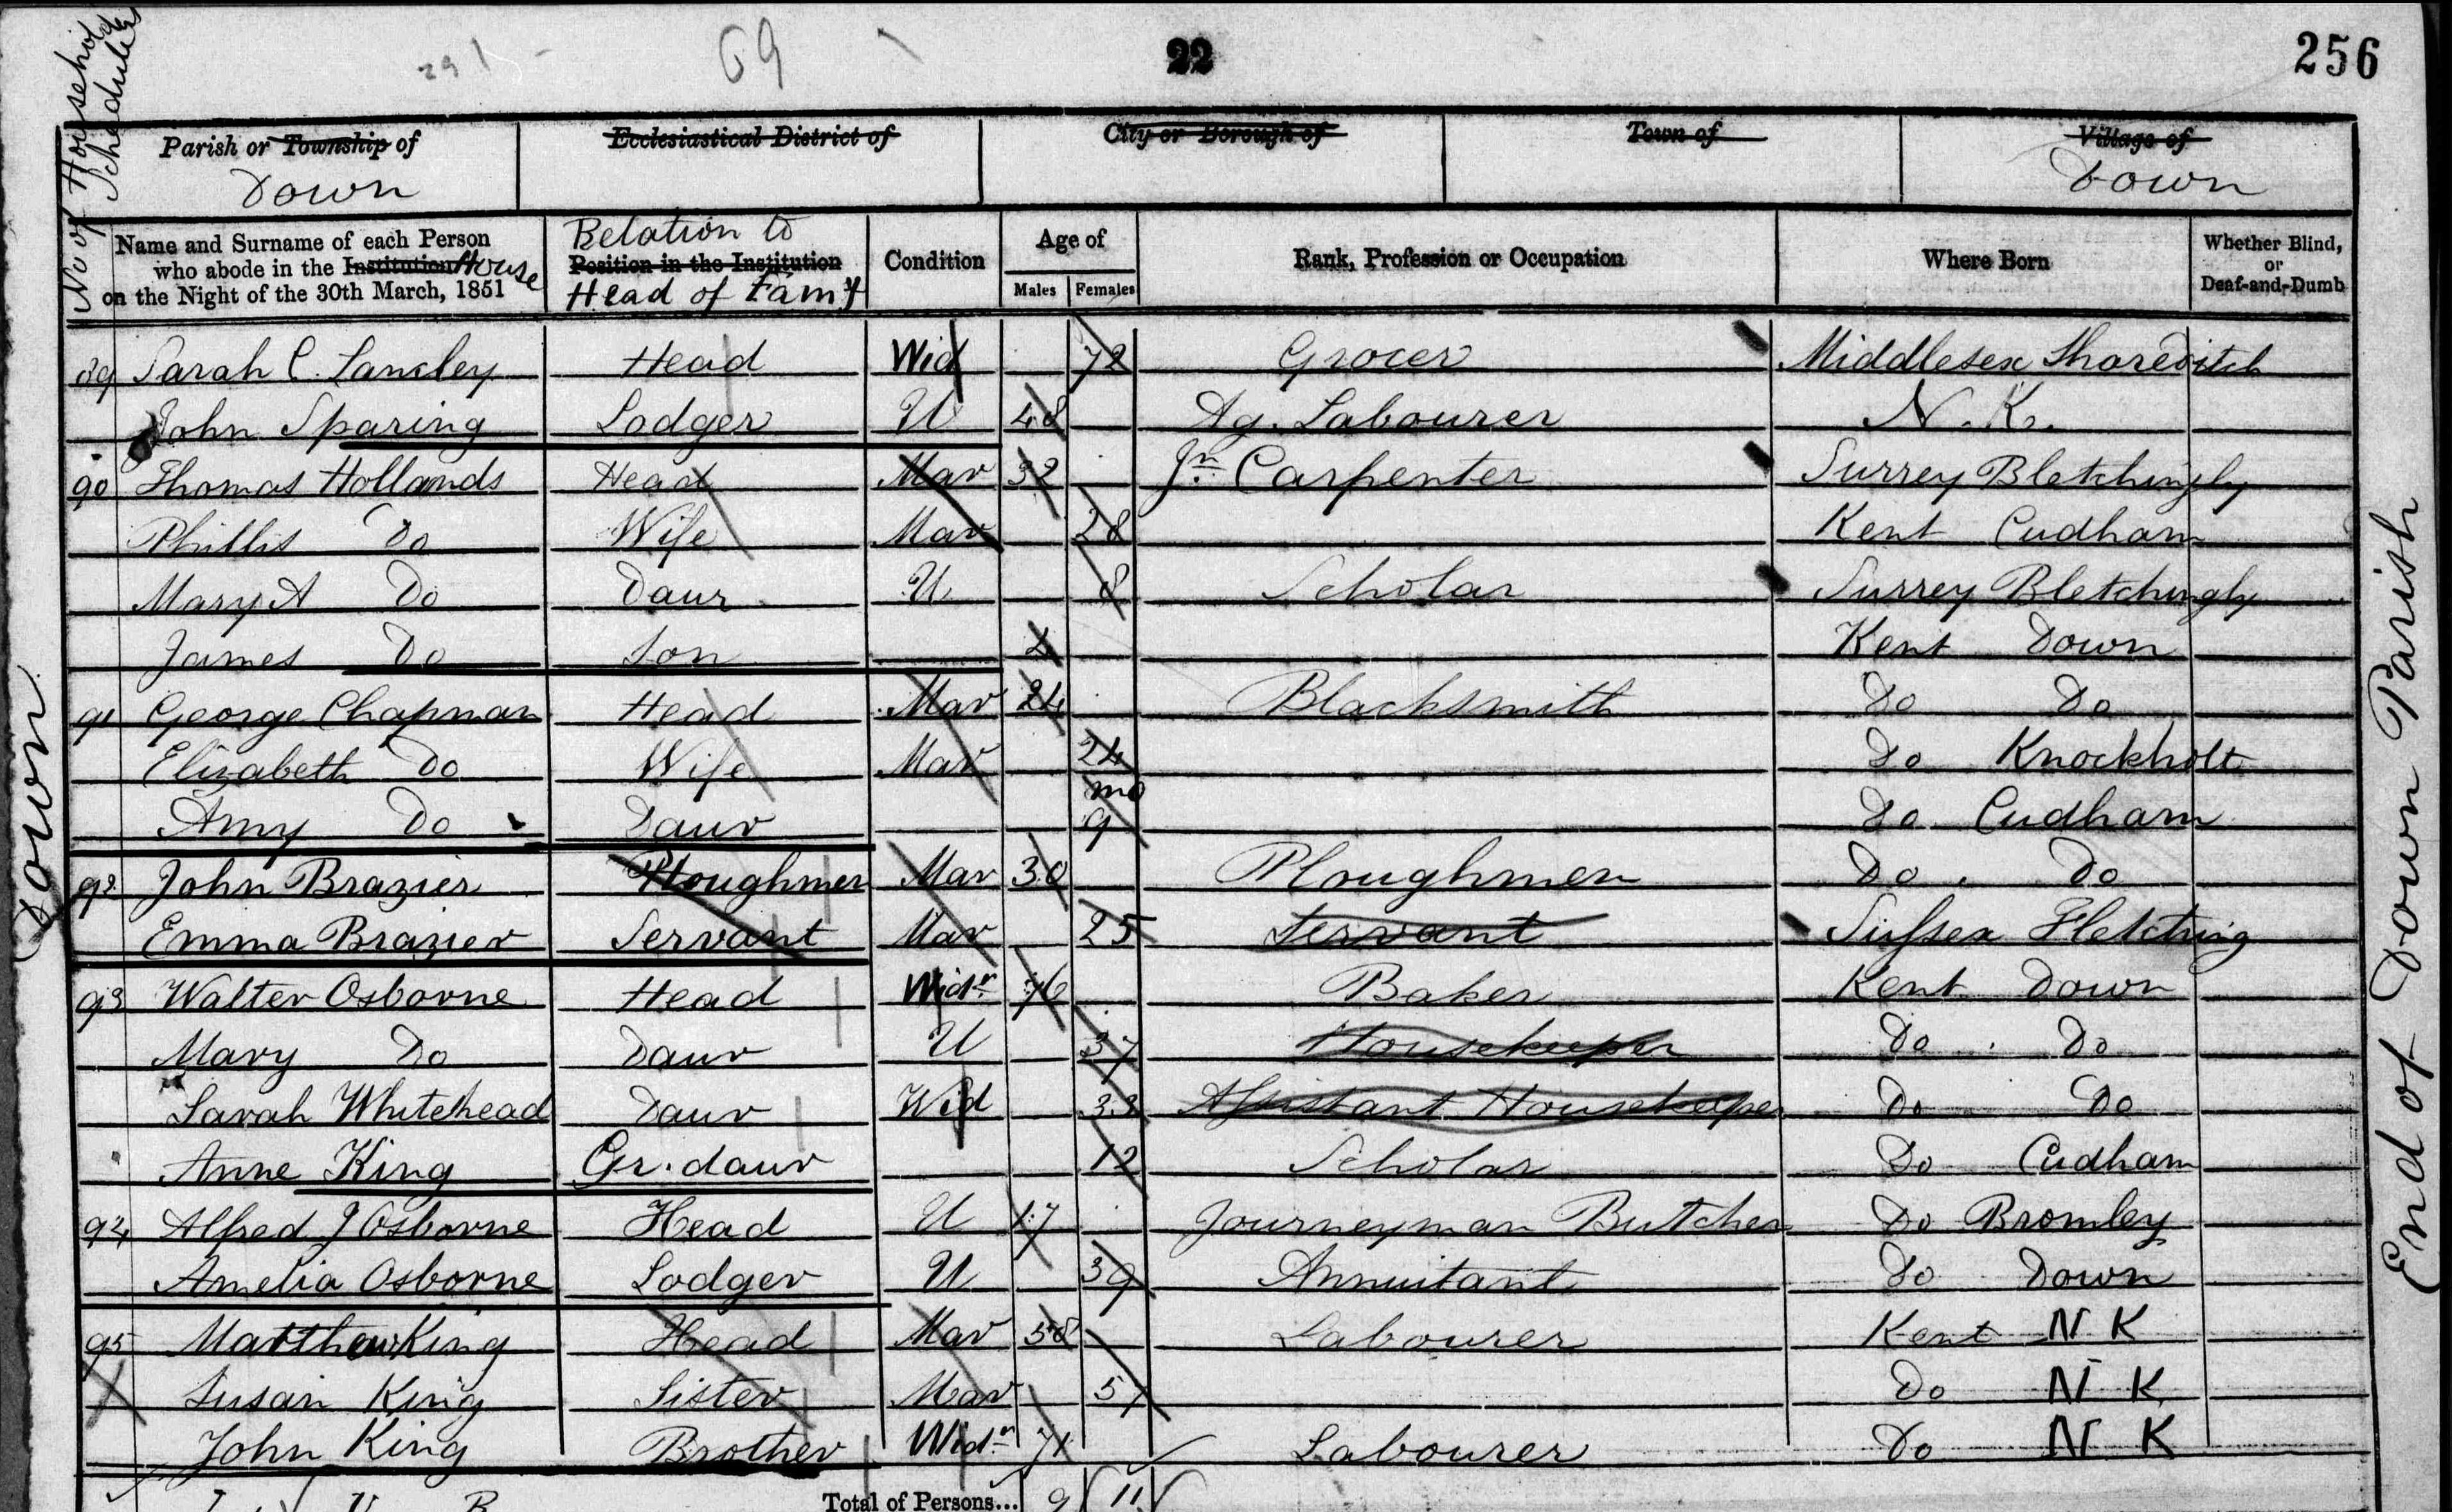 No of Household Schedules
69
22
256
Parish or Township of Down
Ecclesiastical District of
City or Borough of
Town of
Village of Down
Name and Surname of each Person who abode in the Institution House on the Night of the 30th March, 1851
Relation to Position in the Institution Head of Famy
Condition
Age of
Males Females
Rank, Profession or Occupation
Where Born
Whether Blind, or Deaf-and-Dumb
89 Sarah C. Head Wid 72 Grocer Middlesex Shoreditch
John Sparing Lodger U 48 Ag. Labourer N.K.
90 Thomas Hollands Head Mar 32 Jn Carpenter Surrey Bletchingly
Phillis Do Wife Mar 28 Kent Cudham
Mary A Do Daur U 8 Scholar Surrey Bletchingly
James Do Son 4 Kent Down
91 George Chapman Head Mar 24 Blacksmith Do Do
Elizabeth Do Wife Mar 24 Do Knockholt
Amy Do Daur mo 9 Do Cudham
92 John Brazier Ploughmen Mar 30 Ploughmen Do Do
Emma Brazier Servant Mar 25 Servant Sussex Fletching
93 Walter Osborne Head Widr 76 Baker Kent Down
Mary Do Daur U 37 Housekeeper Do Do
Sarah Whitehead Daur Wid 33 Assistant Housekeeper Do Do
Anne King Gr. daur 12 Scholar Do Cudham
94 Alfred J Osborne Head U 17 Journeyman Butcher Do Bromley
Amelia Osborne Lodger U 39 Annuitant Do Down
95 Matthew King Head Mar 58 Labourer Kent N K
Susan King Sister Mar 57 Do N K
John King Brother Widr 71 Labourer Do N K
Total of Persons... 9 11
Down
End of Down Parish